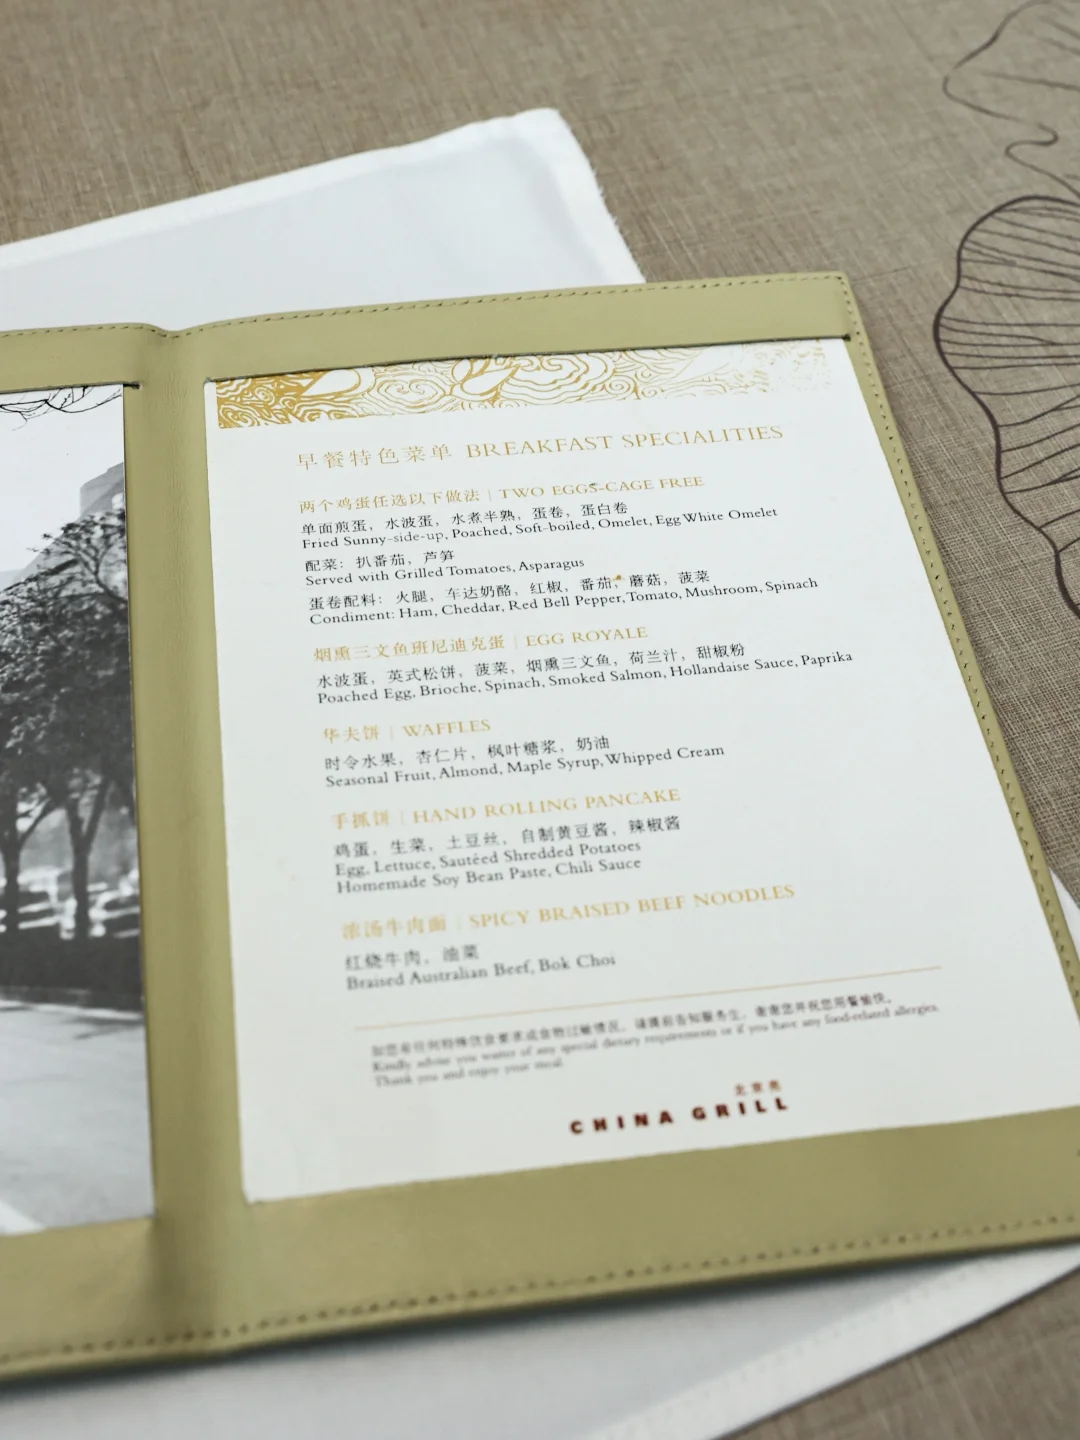 早餐特色菜单 BREAKFAST SPECIALITIES
两个鸡蛋任选以下做法 | TWO EGGS-CAGE FREE
单面煎蛋，水波蛋，水煮半熟，蛋卷，蛋白卷
Fried Sunny-side-up, Poached, Soft-boiled, Omelet, Egg White Omelet
配菜：扒番茄，芦笋
Served with Grilled Tomatoes, Asparagus
蛋卷配料：火腿，车达奶酪，红椒，番茄，蘑菇，菠菜
Condiment: Ham, Cheddar, Red Bell Pepper, Tomato, Mushroom, Spinach
烟熏三文鱼班尼迪克蛋 | EGG ROYALE
水波蛋，英式松饼，菠菜，烟熏三文鱼，荷兰汁，甜椒粉
Poached Egg, Brioche, Spinach, Smoked Salmon, Hollandaise Sauce, Paprika
华夫饼 | WAFFLES
时令水果，杏仁片，枫叶糖浆，奶油
Seasonal Fruit, Almond, Maple Syrup, Whipped Cream
手抓饼 | HAND ROLLING PANCAKE
鸡蛋，生菜，土豆丝，自制黄豆酱，辣椒酱
Egg, Lettuce, Sautéed Shredded Potatoes
Homemade Soy Bean Paste, Chili Sauce
浓汤牛肉面 | SPICY BRAISED BEEF NOODLES
红烧牛肉，油菜
Braised Australian Beef, Bok Choi
如您有任何特殊饮食要求或食物过敏情况，请提前告知服务生，谢谢您并祝您用餐愉快。
Kindly advise you waiter of any special dietary requirements or if you have any food-related allergies.
Thank you and enjoy your meal.
北京亮
CHINA GRILL